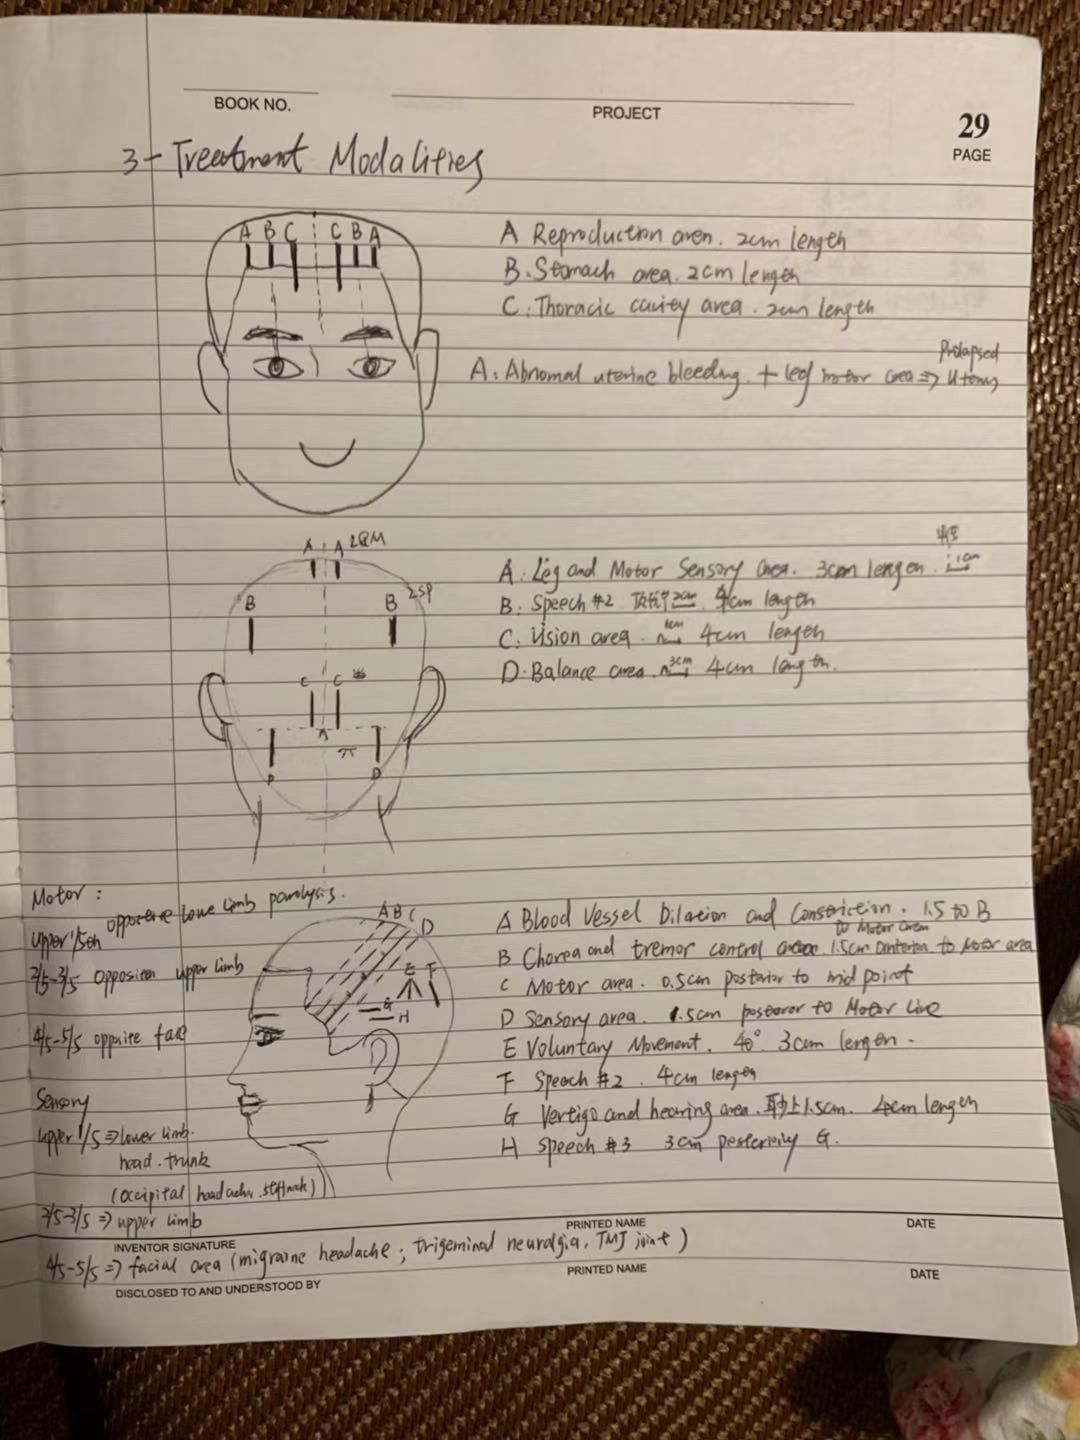 BOOK NO.
PROJECT
29
PAGE
3- Treatment Modalities
A B C C B A
A Reproduction area. 2cm length
B. Stomach area. 2cm length
C. Thoracic cavity area. 2cm length
Prolapsed
A. Abnomal uterine bleeding. + leg motor area ⇒ Uterus
A A L&M
B B 2SP
C C
D D
A. Leg and Motor Sensory area. 3cm lengen. 1cm
B. Speech #2 顶 2cm 4cm length
C. Vision area 1cm 4cm length
D. Balance area 3cm 4cm length.
Motor:
upper 1/5th opposite lowe limb paralysis.
2/5-3/5 opposition upper limb
4/5-5/5 oppoite face
Sensory
upper 1/5 ⇒ lower limb.
head. trunk
(occipital headache. stiffneck)
2/5-3/5 ⇒ upper limb
4/5-5/5 ⇒ facial area (migraine headache; trigeminal neuralgia, TMJ joint)
A B C D
E F
G
H
A Blood Vessel Dilation and Constriction. 1.5 to B
to Motor area
B Chorea and tremor control area 1.5cm anterior to Motor area
C Motor area. 0.5cm posterior to mid point
D Sensory area. 1.5cm posteror to Motor Line
E Voluntary Movement. 40° 3cm lengen.
F Speech #2. 4cm length
G Vertigo and hearing area. 耳上1.5cm. 4cm length
H Speech #3 3cm posteriorly G.
PRINTED NAME
DATE
INVENTOR SIGNATURE
PRINTED NAME
DATE
DISCLOSED TO AND UNDERSTOOD BY